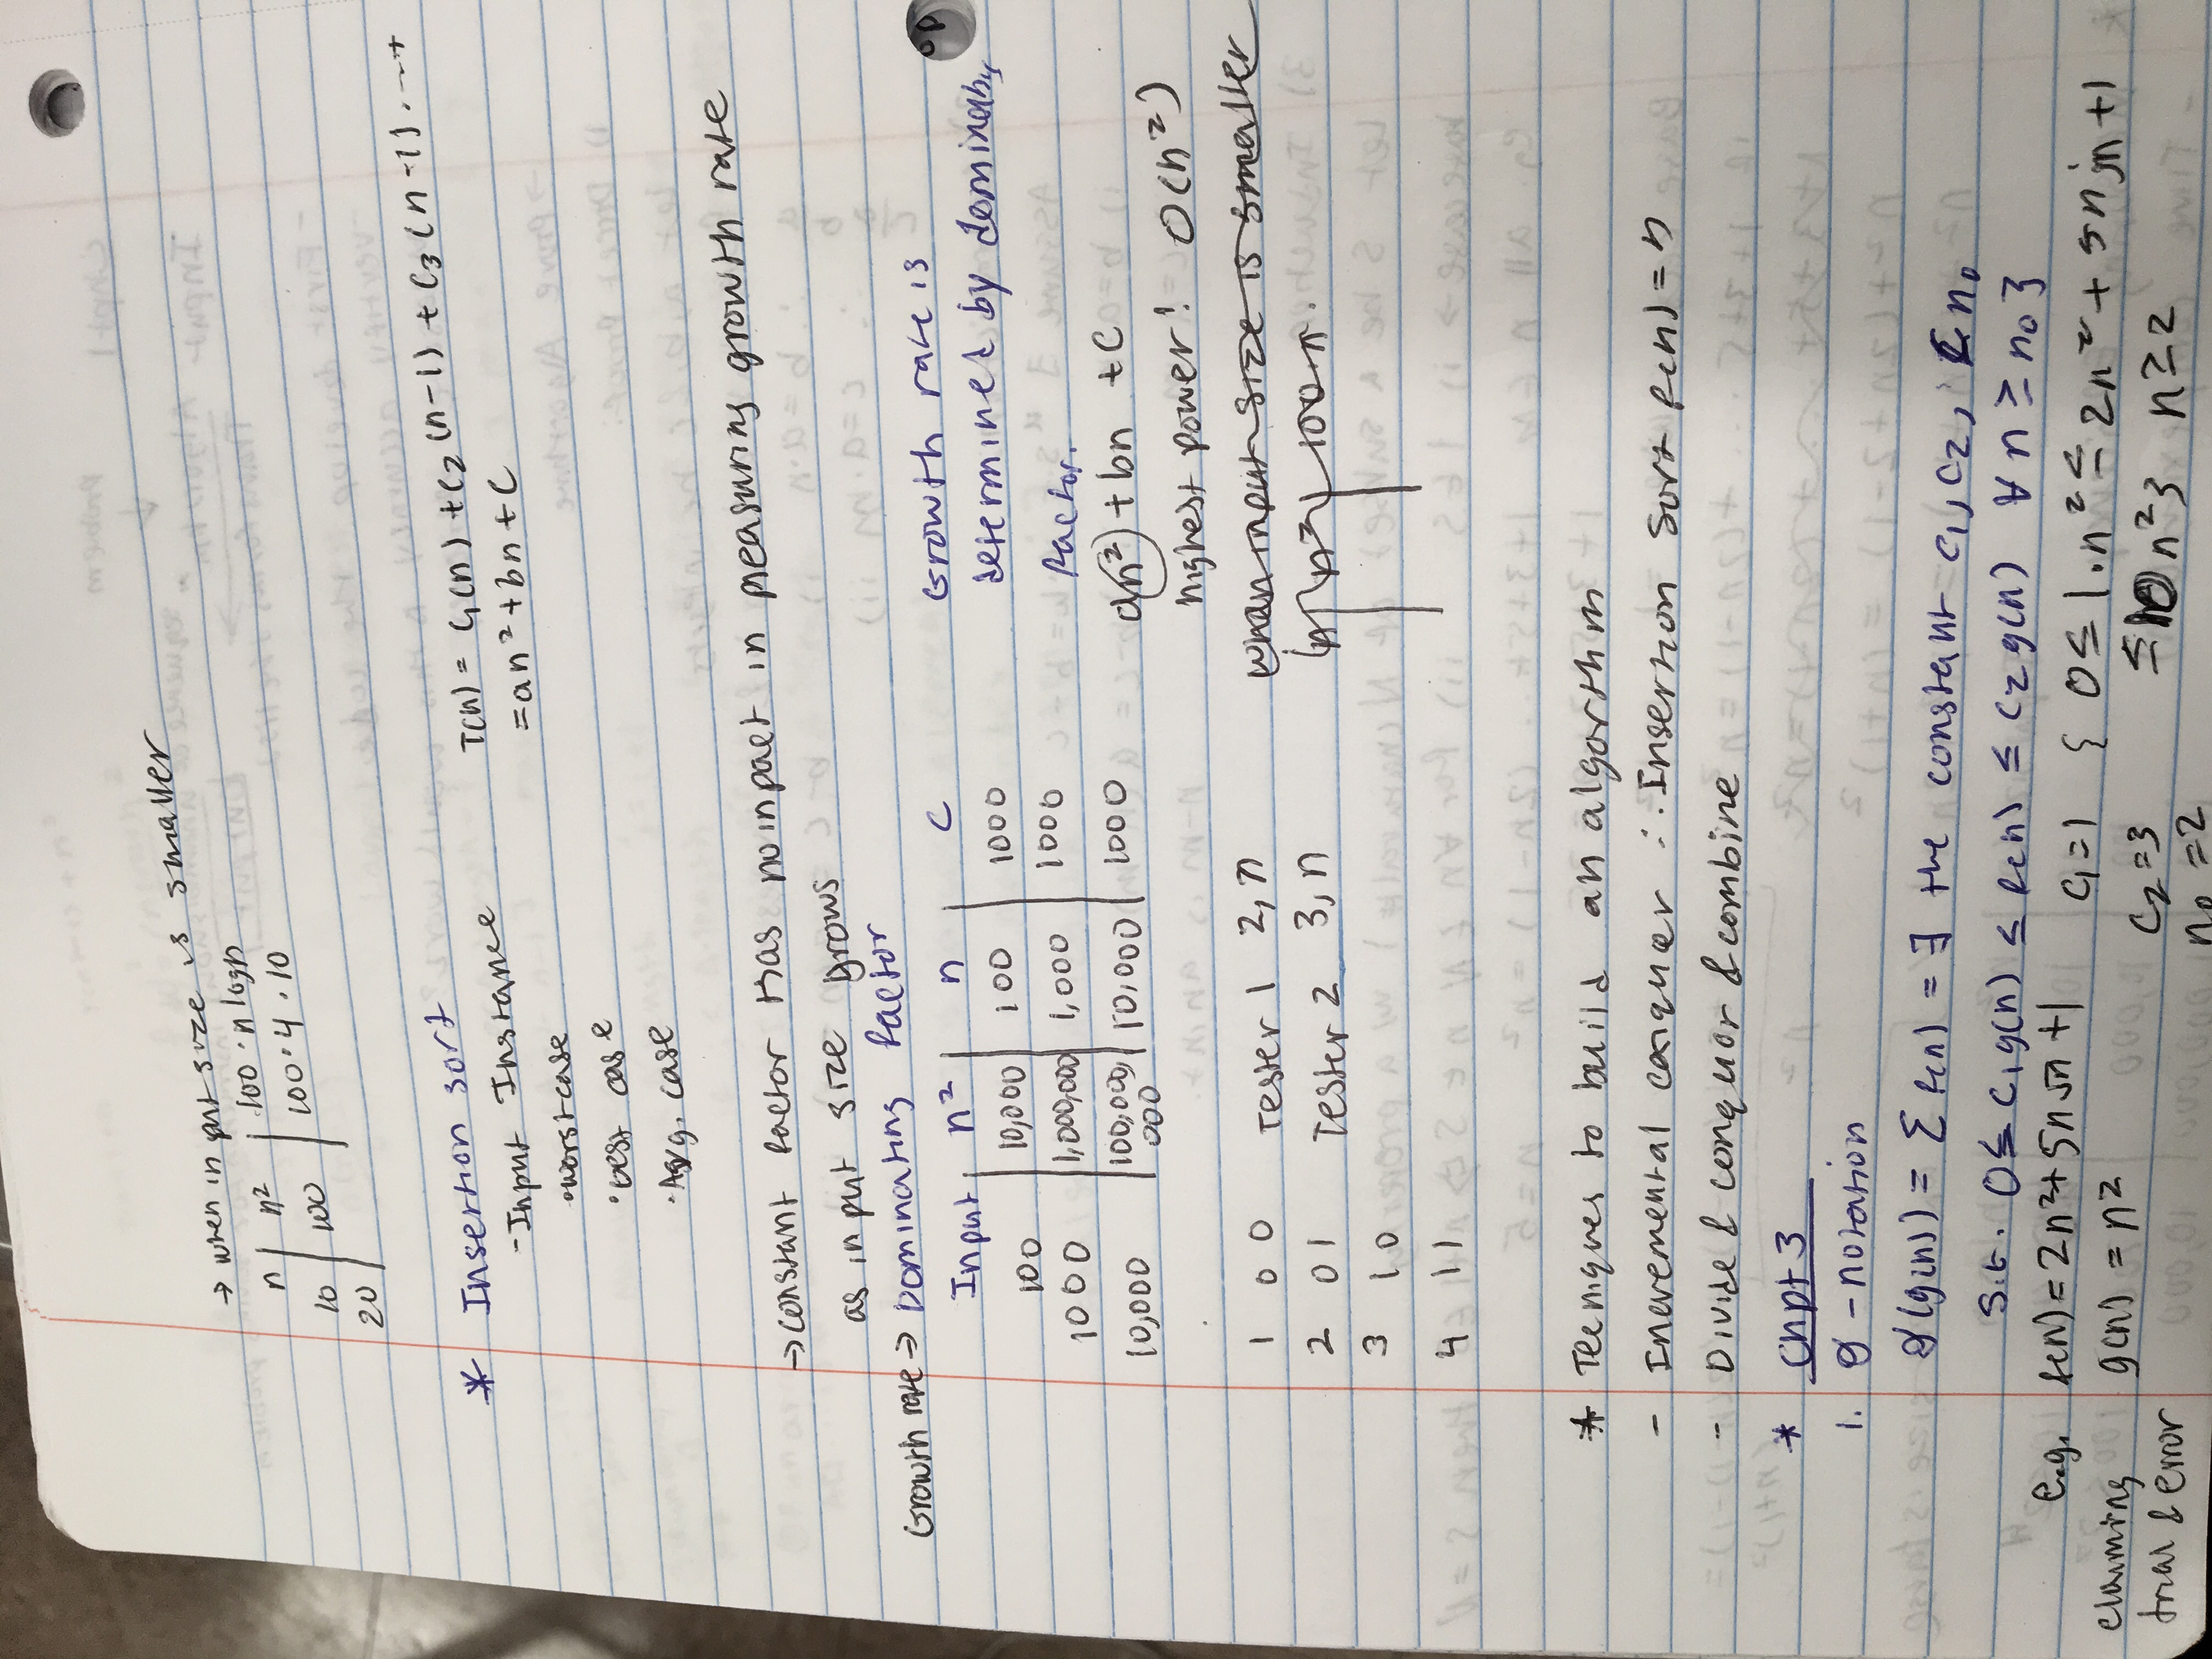 → when input size is smaller
n | n² | 100·nlogn
10 | 100 | 100·4·10
20 |
* Insertion sort
T(n) = C₁(n) + C₂(n-1) + C₃(n-1)...+
-Input Instance
= an² + bn + C
•worst case
•best case
•Avg. case
→ constant factor has no inpact in measuring growth rate
as input size grows
Growth rate → Dominating factor
Input | n² | n | C
100 | 10,000 | 100 | 1000
1000 | 1,000,000 | 1,000 | 1000
10,000 | 100,000,000 | 10,000 | 1000
Growth rate is
determined by dominating
factor.
an² + bn + C
highest power! O(n²)
1 0 0 Tester 1 2, n
2 0 1 Tester 2 3, n
3 1 0
4 1 1
when input size is smaller
n | n² | 100 n.
* Tecniques to build an algorthm
- Incremental conquer ∴ Insertion Sort f(n) = n
- Divide & conquor & combine
* Chpt 3
1. θ - notation
θ(g(n)) = { f(n) = ∃ the constant c₁, c₂, & n₀
s.t. 0 ≤ c₁g(n) ≤ f(n) ≤ c₂g(n) ∀ n ≥ n₀ }
e.g. f(n) = 2n² + 5n +1
claiming g(n) = n²
trial & error
c₁ = 1 { 0 ≤ 1·n² ≤ 2n² + 5n +1
c₂ = 3 ≤ 10n² } n ≥ 2
n₀ = 2